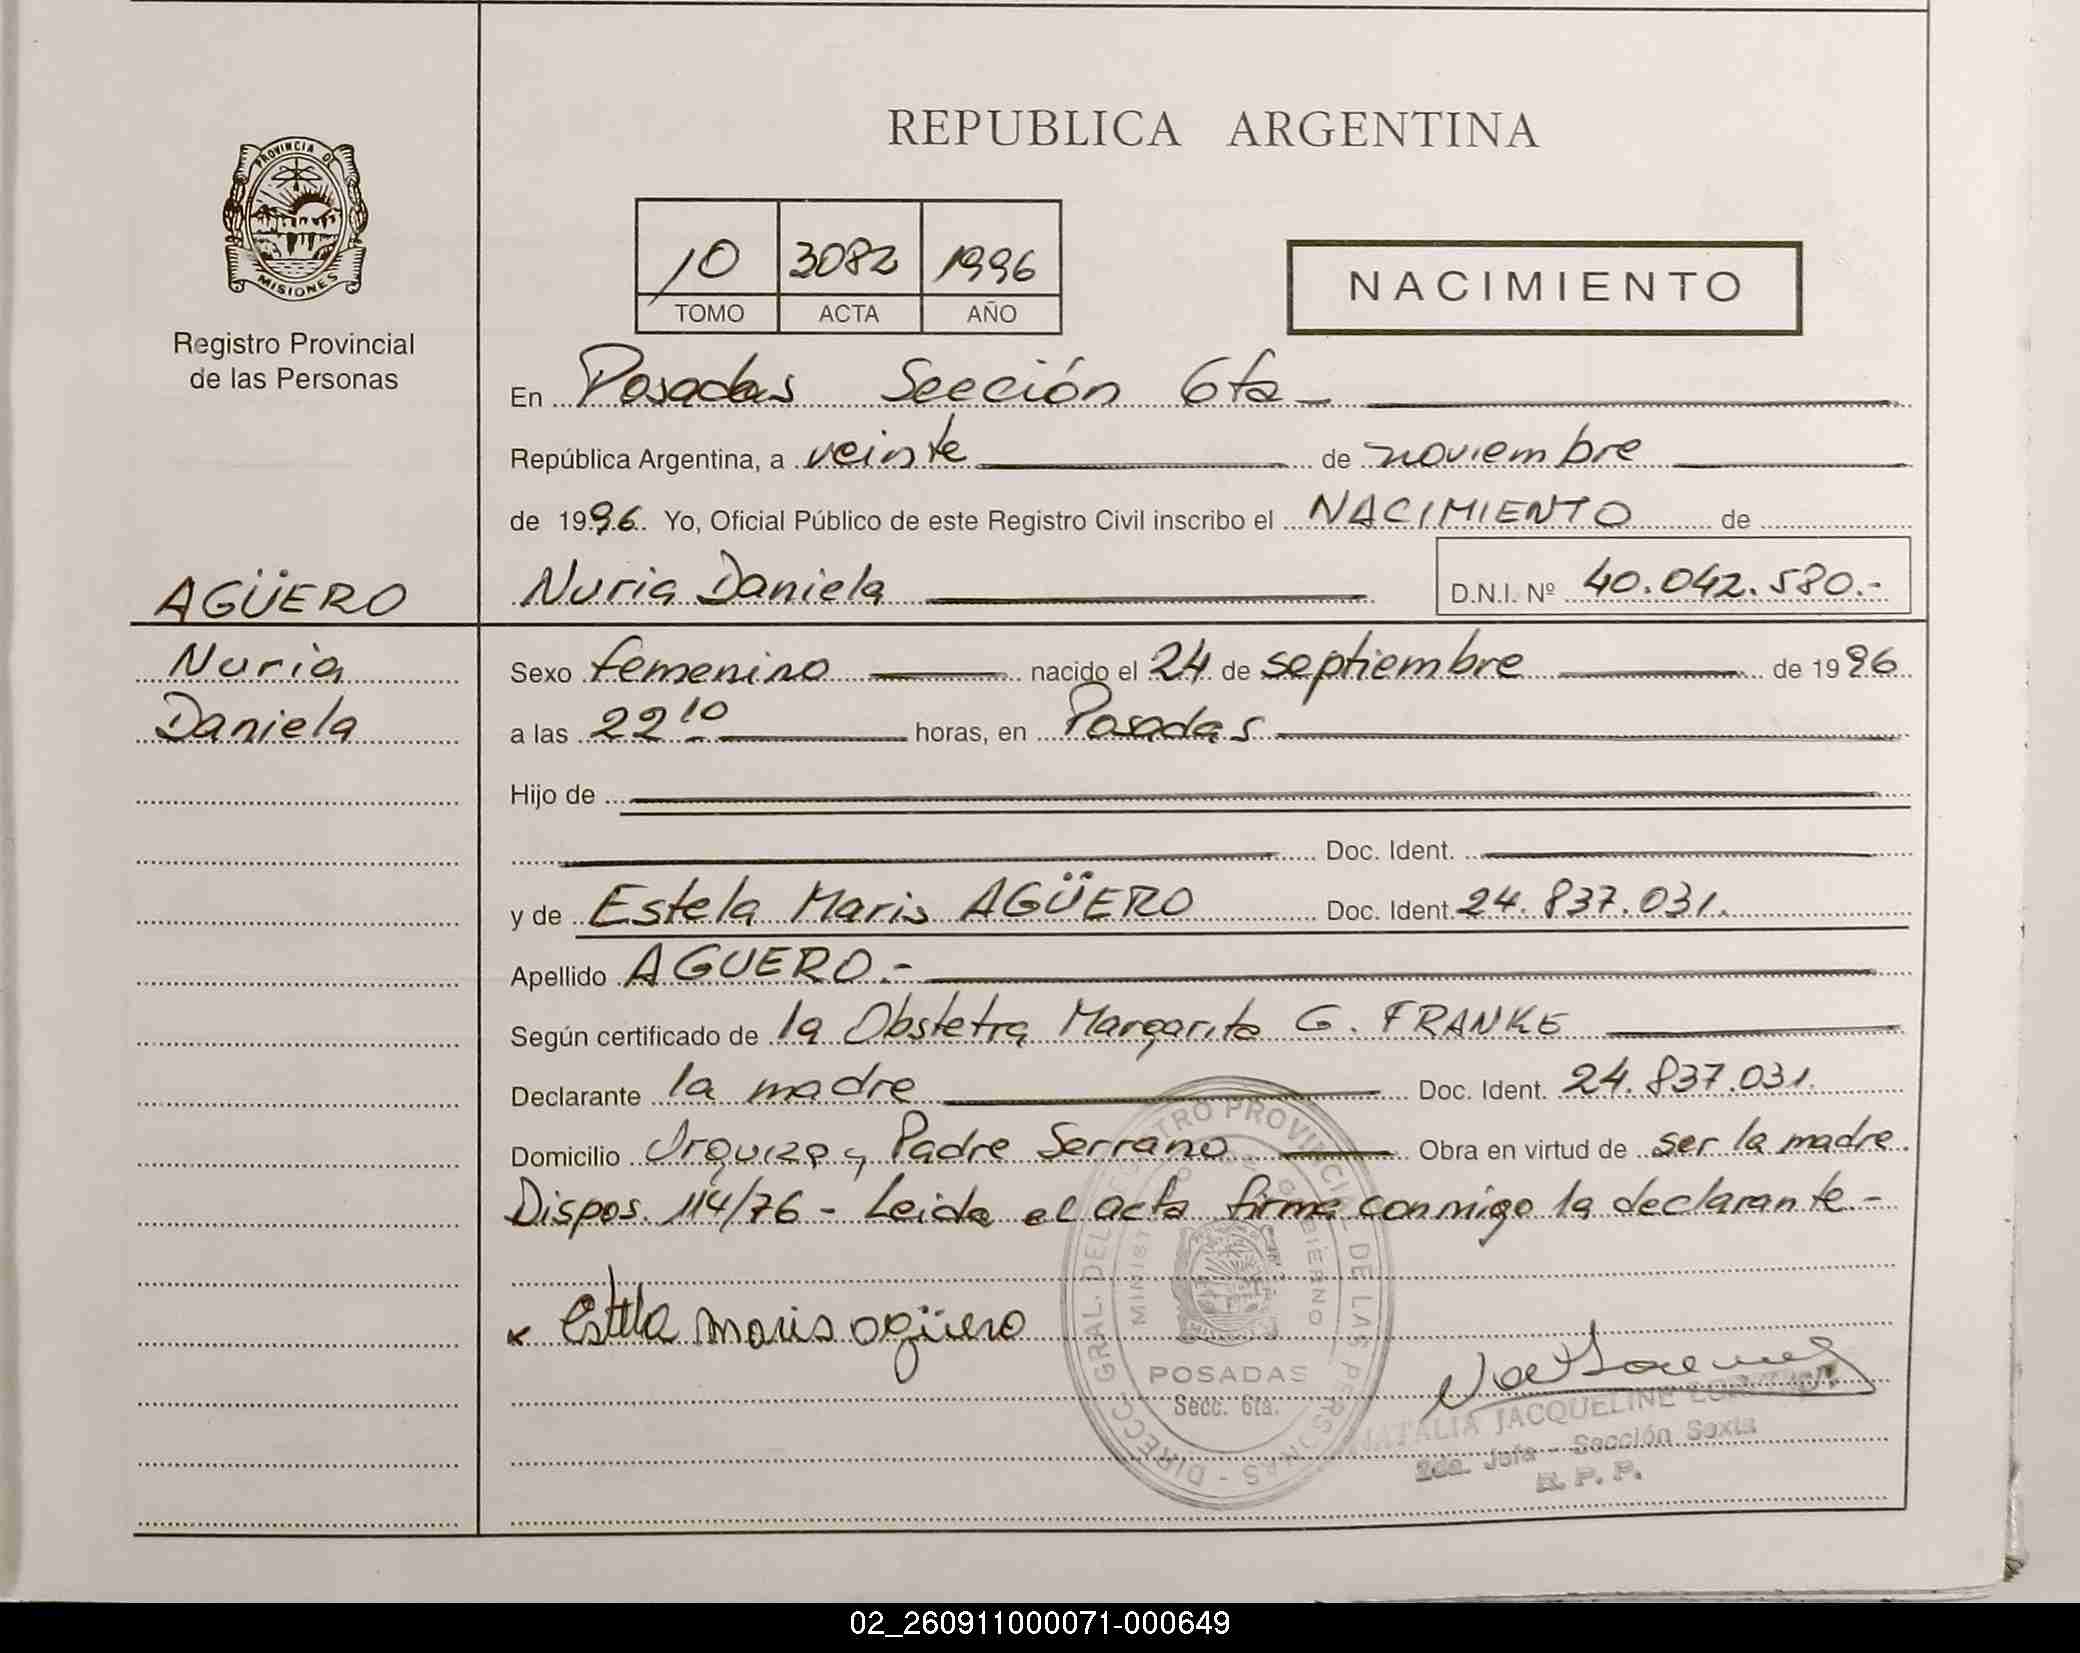 REPUBLICA ARGENTINA
PROVINCIA DE
MISIONES
Registro Provincial
de las Personas
10 3082 1996
TOMO ACTA AÑO
NACIMIENTO
En Posadas Sección 6ta
República Argentina, a veinte de noviembre
de 1996. Yo, Oficial Público de este Registro Civil inscribo el NACIMIENTO de
AGÜERO
Nuria Daniela D.N.I. Nº 40.042.580.-
Nuria
Sexo femenino nacido el 24 de septiembre de 1996
Daniela
a las 22 10 horas, en Posadas
Hijo de
Doc. Ident.
y de Estela Maris AGÜERO Doc. Ident. 24.837.031.
Apellido AGUERO.-
Según certificado de la Obstetra Margarita G. FRANKE
Declarante la madre Doc. Ident. 24.837.031.
Domicilio Urquiza y Padre Serrano Obra en virtud de ser la madre.
Dispos. 114/76 - Leida el acta firma conmigo la declarante.-
x Estela maris agüero
DIRECC. GRAL. DEL REGISTRO PROVINCIAL DE LAS PERSONAS -
MINISTERIO DE GOBIERNO
POSADAS
Secc. 6ta.
NATALIA JACQUELINE
2da. Jefa - Sección Sexta
R. P. P.
02_260911000071-000649